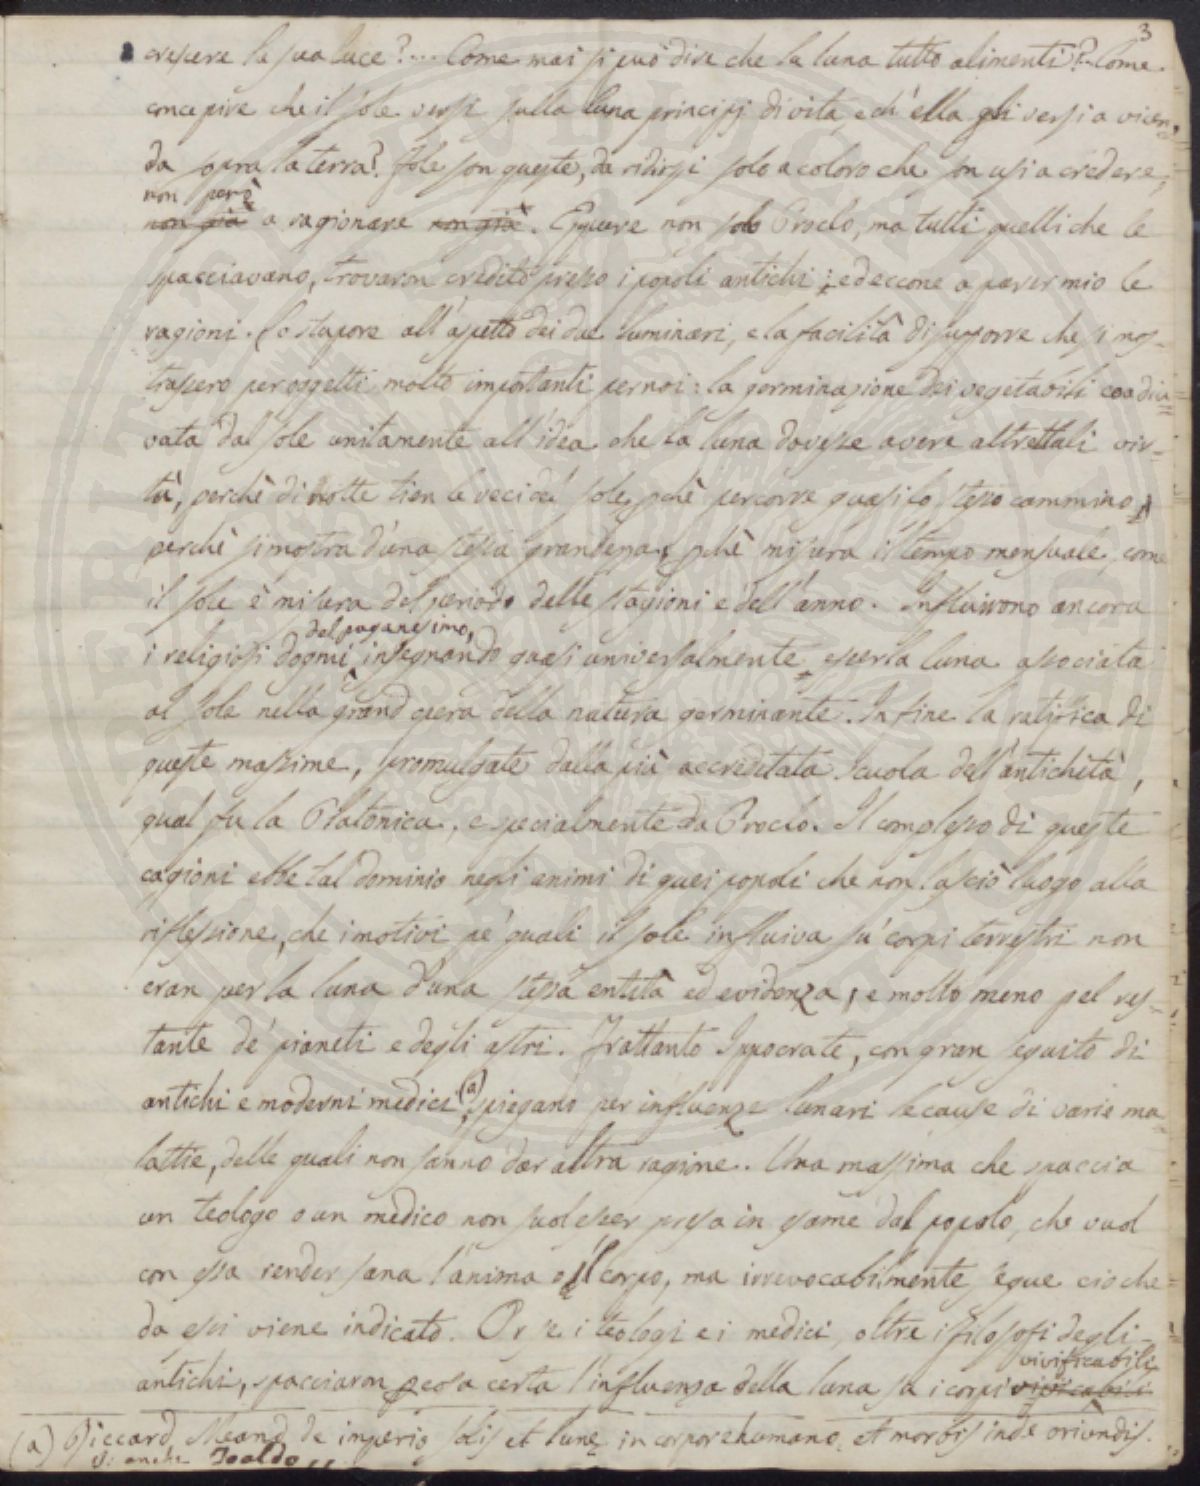 3
crescere la sua luce?.... Come mai si può dire che la luna tutto alimenti? Come
concepire che il sole versi sulla luna principj di vita, e ch'ella gli versi a vicen=
da sopra la terra? Fole son queste, da ridirsi solo a coloro che son usi a credere,
non però
non già a ragionare non già. Eppure non solo Proclo, ma tutti quelli che le
spacciavano, trovaron credito presso i popoli antichi; ed eccone a parer mio le
ragioni. Lo stupore all'aspetto dei due luminari, e la facilità di supporre che si mos-
trassero per oggetti molto importanti per noi: la germinazione dei vegetabili coadiu=
vata dal sole unitamente all'idea che la luna dovesse avere altrettali vir-
tù, perchè di notte tien le veci del sole, pchè percorre quasi lo stesso cammino,
perchè si mostra d'una stessa grandezza, pchè misura il tempo mensuale, come
il sole è misura del periodo delle stagioni e dell'anno. Influirono ancora
del paganesimo,
i religiosi dogmi insegnando quasi universalmente, esser la luna associata
al sole nella grand'opera della natura germinante. In fine la ratifica di
queste massime, promulgate dalla più accreditata Scuola dell'antichità,
qual fu la Platonica, e specialmente da Proclo. Il complesso di queste
cagioni ebbe tal dominio negli animi di quei popoli che non lasciò luogo alla
riflessione, che i motivi pe' quali il sole influiva su' corpi terrestri non
eran per la luna d'una stessa entità ed evidenza, e molto meno pel res-
tante de' pianeti e degli astri. Frattanto Ippocrate, con gran seguito di
antichi e moderni medici (a), spiegano per influenze lunari le cause di varie ma=
lattie, delle quali non sanno dar altra ragione. Una massima che spaccia
un teologo o un medico non suol esser presa in esame dal popolo, che vuol
con essa render sana l'anima o il corpo, ma irrevocabilmente segue ciò che
da essi viene indicato. Or se i teologi e i medici, oltre i filosofi degli
vivificabili
antichi, spacciaron cosa certa l'influenza della luna su i corpi vivicabili
(a) Riccard Meand, De imperio solis et lunę in corpore humano, et morbis inde oriundis.
Vi anche Toaldo